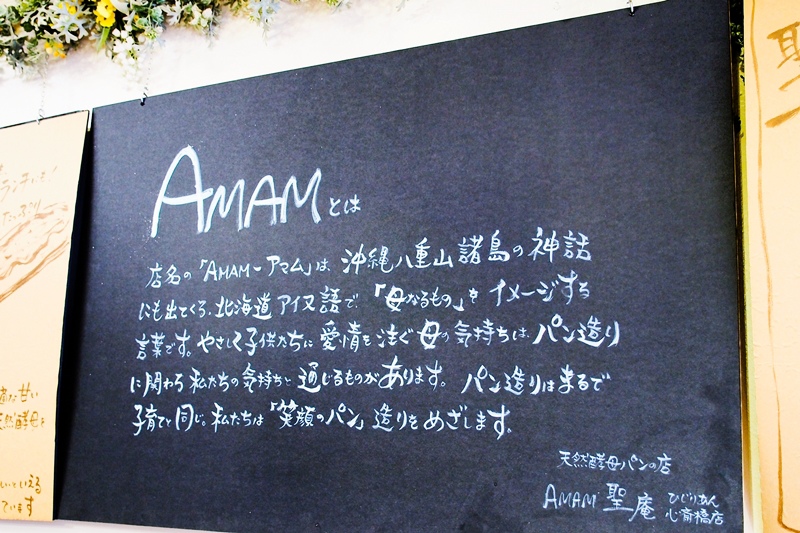 AMAMとは
店名の「AMAM-アマム」は、沖縄八重山諸島の神話
にも出てくる、北海道アイヌ語で、「母なるもの」をイメージする
言葉です。やさしく子供たちに愛情を注ぐ母の気持ちは、パン造り
に関わる私たちの気持ちと通じるものがあります。パン造りはまるで
子育てと同じ。私たちは「笑顔のパン」造りをめざします。
天然酵母パンの店
AMAM 聖庵 ひじりあん
心斎橋店
ランチにも!
たっぷり
な甘い
天然酵母を
いえる
ています
聖